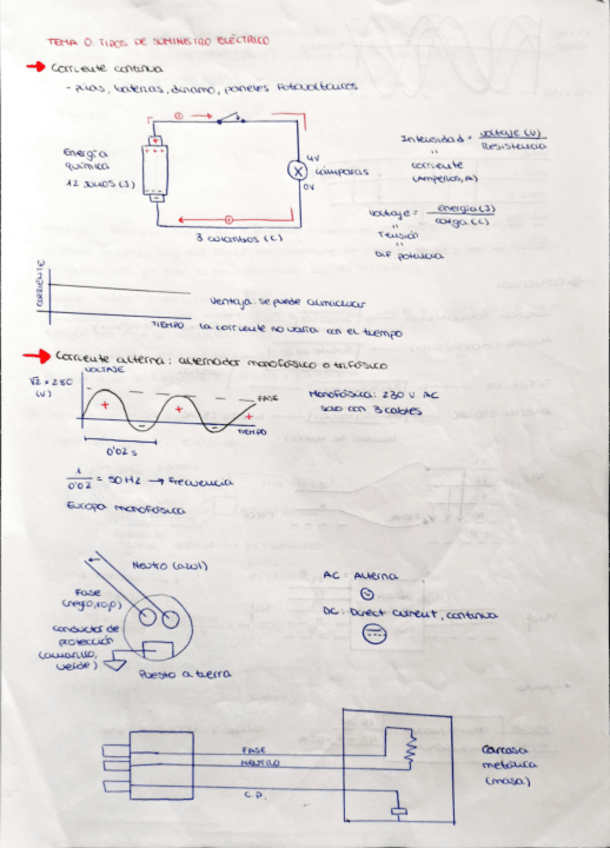 TEMA 0. TIPOS DE SUMINISTRO ELÉCTRICO
Corriente continua
- pilas, baterías, dinamo, paneles fotovoltaicos
Energía
química
12 Julios (J)
+
-
4V
Lámparas
0V
3 culombios (C)
Intensidad = voltaje (V)
Resistencia
"
corriente
(Amperios, A)
voltaje = energía (J)
carga (C)
"
Tensión
"
Dif potencia
CORRIENTE
TIEMPO
Ventaja: se puede almacenar
La corriente no varía con el tiempo
Corriente alterna: alternador monofásico o trifásico
VOLTAJE
√2 x 230
(V)
+
-
+
-
+
FASE
TIEMPO
0'02 s
Monofásica: 230 V AC
solo con 3 cables
1
0'02 = 50 Hz → Frecuencia
Europa monofásica
Neutro (azul)
Fase
(negro, rojo)
conductor de
protección
(amarillo,
verde)
Puesto a tierra
AC: Alterna
DC: Direct current, continua
FASE
NEUTRO
C.P.
Carcasa
metálica
(masa)